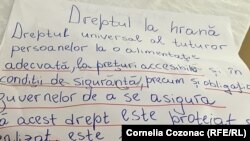 Dreptul la hrană
Dreptul universal al tuturor
persoanelor la o alimentație
adecvată, la prețuri accesibile și în
condiții de siguranță, precum și obligația
guvernelor de a se asigura
ă acest drept este protejat și
ealizat este
Cornelia Cozonac (RFE/RL)